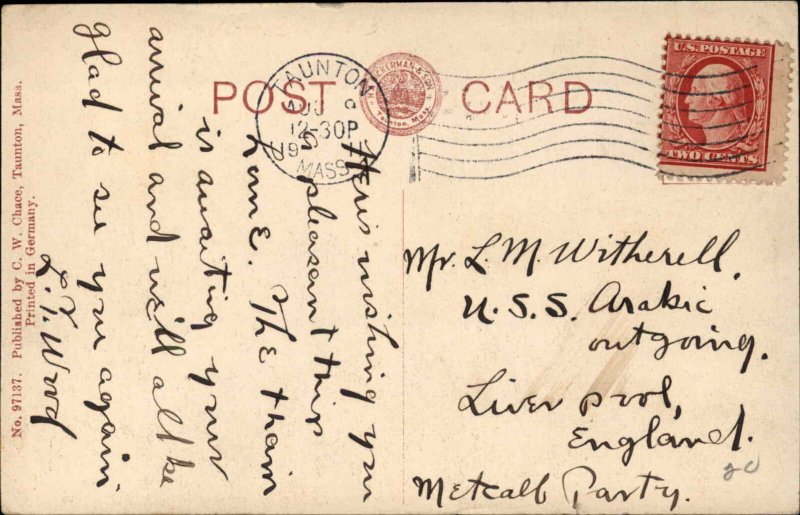 POST CARD
TAUNTON
AUG
12-30P
19
MASS.
U.S. POSTAGE
TWO CENTS
Here's wishing you
a pleasant trip
home. The thain
is awaiting your
arrival and we'll all be
glad to see you again
L. T. Wood
Mr. L. M. Witherell,
U.S.S. Arabic
outgoing.
Liverpool,
England.
Metcalb Party.
No. 97137. Published by C. W. Chace, Taunton, Mass.
Printed in Germany.